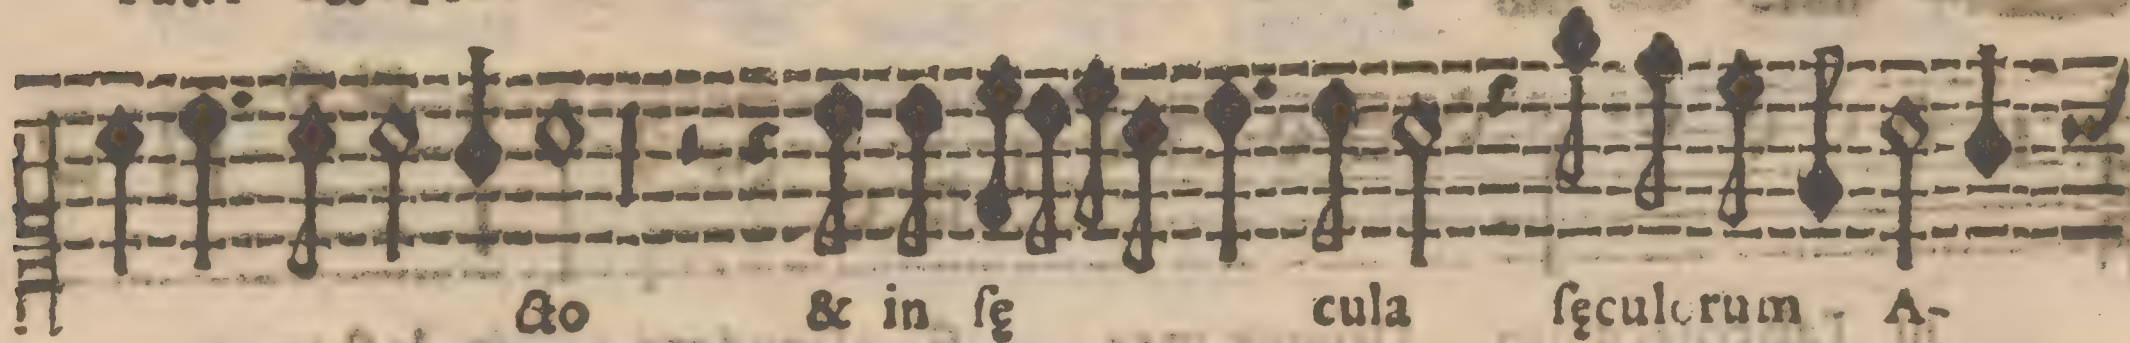 &to & in ſę cula ſęculorum A-